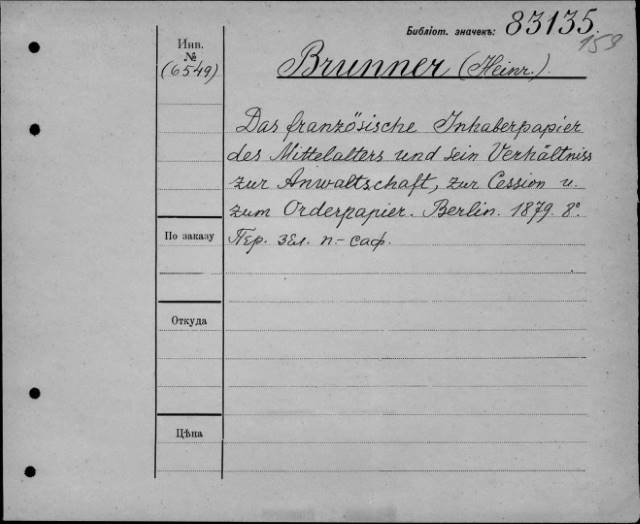 Библіот. значекъ: 83135.
159
Инв.
№
(6549)
Brunner (Heinr.).
Das französische Inhaberpapier
des Mittelalters und sein Verhältniss
zur Anwaltschaft, zur Cession u.
zum Orderpapier. Berlin. 1879. 8°.
По заказу
Пер. зел. п.-саф.
Откуда
Цѣна